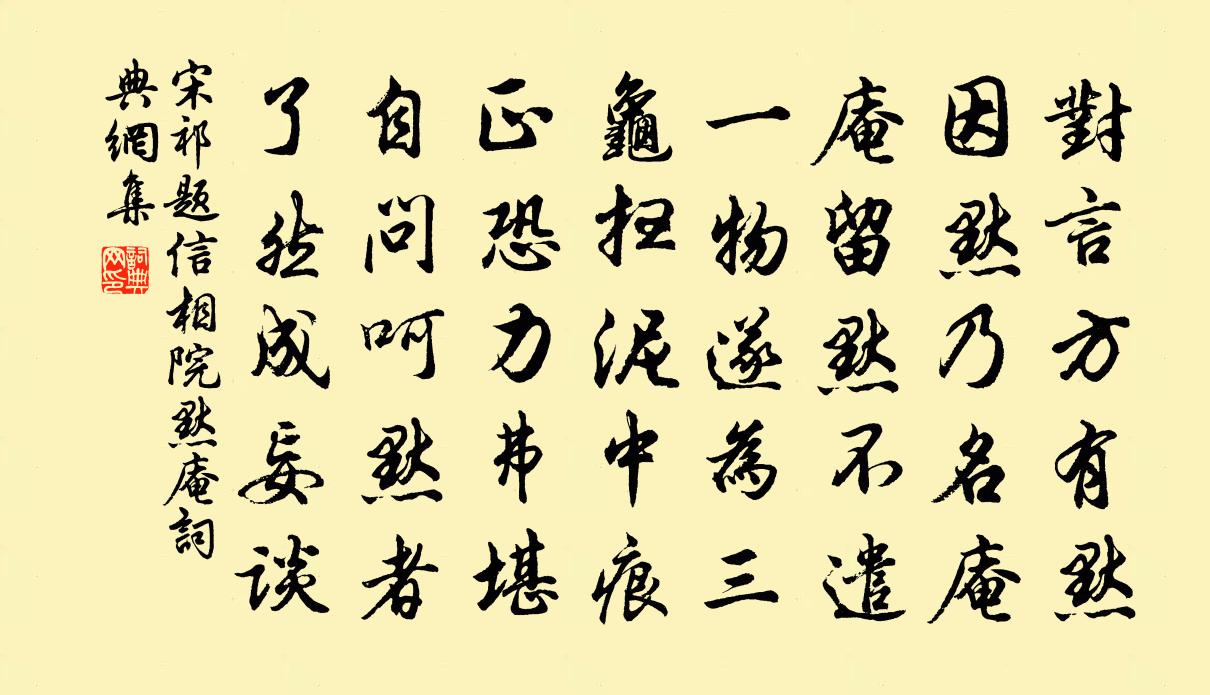 對言方有默
因默乃名庵
庵留默不遣
一物遂為三
龜扫泥中痕
正恐力弗堪
自问呵默者
了然成妄談
宋祁题信相院默庵詞
典網集
詞典網印